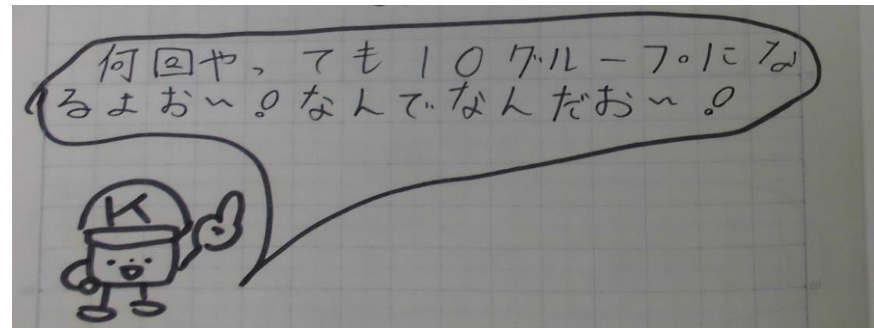 何回やっても10グループにな
るよお〜!なんでなんだお〜!
K